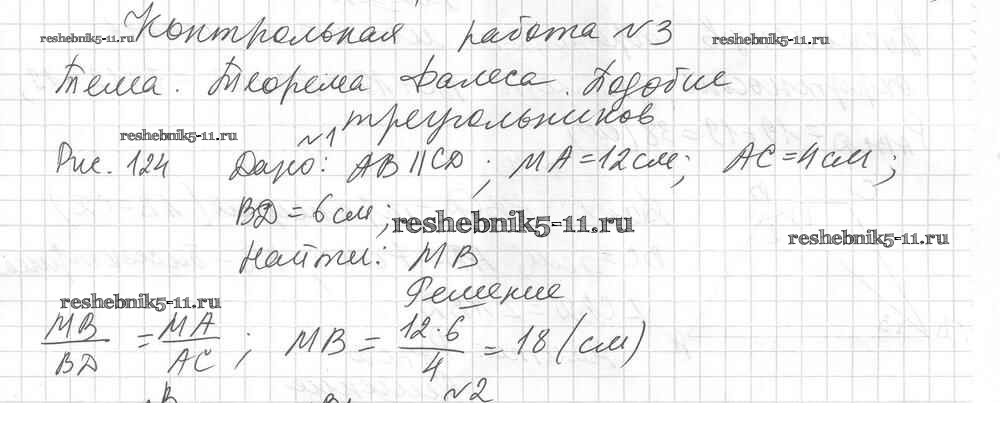 Контрольная работа №3
reshebnik5-11.ru reshebnik5-11.ru
Тема. Теорема Фалеса. Подобие
треугольников
reshebnik5-11.ru
№1
Рис. 124 Дано: AB || CD ; MA = 12 см; AC = 4 см;
BD = 6 см;
reshebnik5-11.ru
reshebnik5-11.ru
Найти: MB
Решение
reshebnik5-11.ru
MB/BD = MA/AC ; MB = 12·6/4 = 18 (см)
№2
B